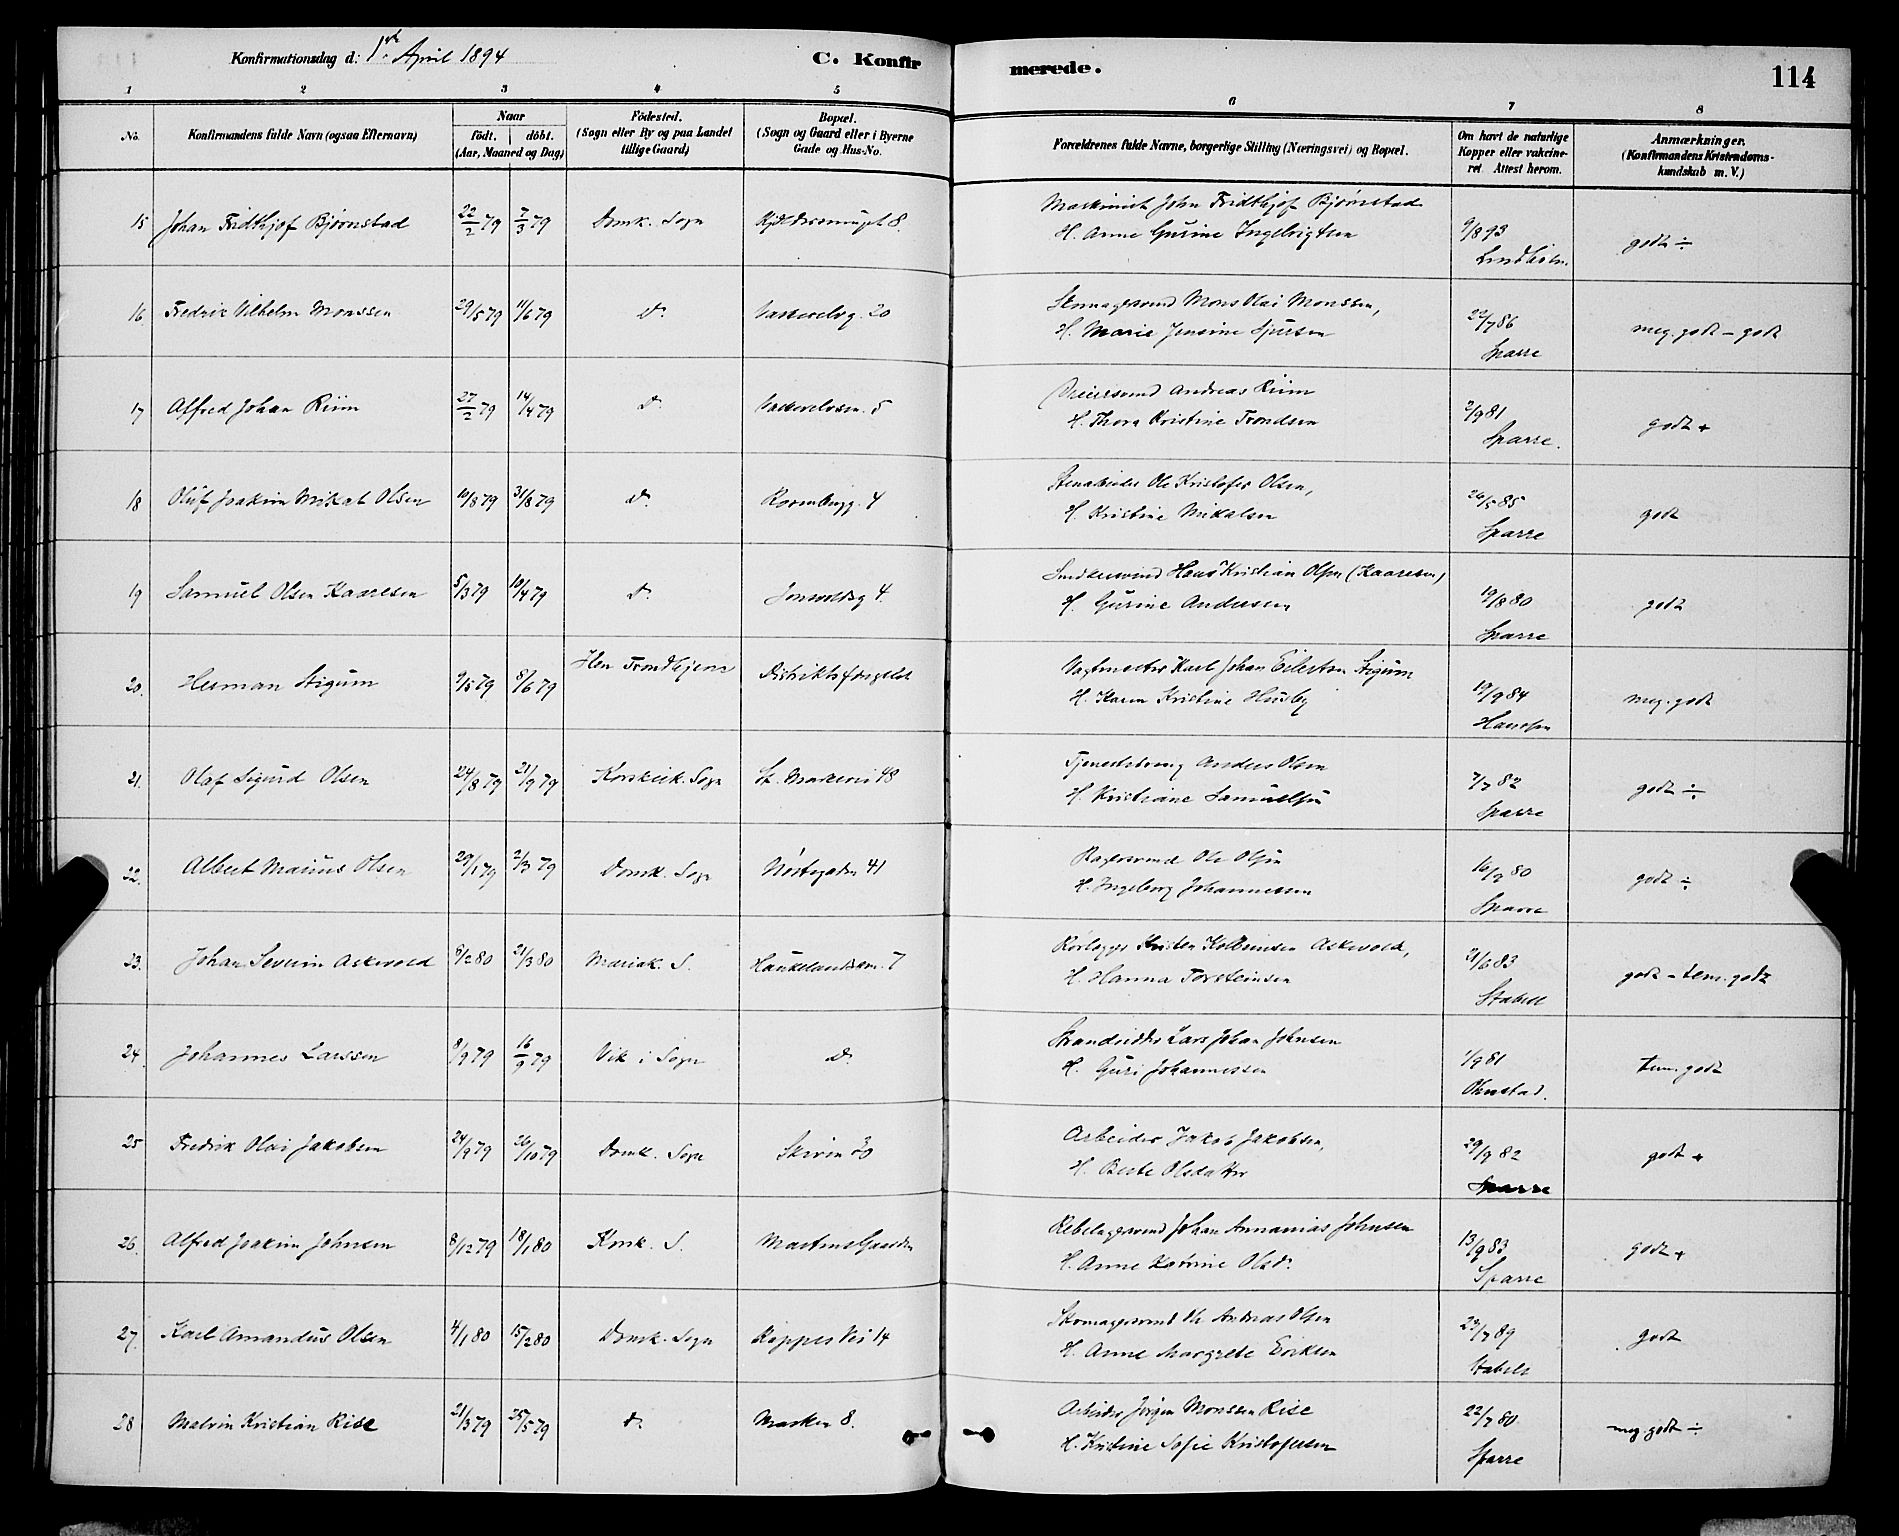 Konfirmationsdag d: 1ste April 1894
C. Konfirmerede.
114
1 2 3 4 5 6 7 8
No.
Konfirmandens fulde Navn (ogsaa Efternavn)
Naar
födt. döbt.
(Aar, Maaned og Dag)
Födested.
(Sogn eller By og paa Landet
tillige Gaard)
Bopæl.
(Sogn og Gaard eller i Byerne
Gade og Hus-No.
Forældrenes fulde Navne, borgerlige Stilling (Næringsvei) og Bopæl.
Om havt de naturlige
Kopper eller vakcine-
ret. Attest herom.
Anmærkninger.
(Konfirmandens Kristendoms-
kundskab m. V.)
15 Johan Fridthjof Bjørnstad 22/2 79 7/3 79 Domk. Sogn 8. Maskinist John Fridthjof Bjørnstad
H. Anne Gurine Ingebrigtsen 9/8 93 godt ÷
Lindholm.
16 Fredrik Vilhelm Monssen 29/5 79 11/6 79 do 20 Skomagersvend Mons Olai Monssen,
H. Marie Jensine 22/7 86 meg. godt - godt
Sparre
17 Alfred Johan Riim 27/2 79 14/4 79 do 5 Andreas Riim
H. Thora Kristine Trondsen 2/9 81 godt +
Sparre.
18 Oluf Joakim Mikal Olsen 10/8 79 31/8 79 do 4 Ole Kristofer Olsen,
H. Kristine Mikalsen 26/5 85 godt
Sparre
19 Samuel Olsen Kaaresen 5/3 79 10/4 79 do 4. Hans Kristian Olsen (Kaaresen)
H. Gurine Andersen 19/8 80 godt
Sparre
20. Herman Stigum 9/5 79 8/6 79 Trondhjem Distriktsfængslet Vagtmester Karl Johan Eilertsen Stigum
H. Karen Kristine Husby 19/9 84 meg. godt
Hanssen
21. Olaf Sigurd Olsen 24/8 79 21/9 79 Korskirk. Sogn St. Markevei 48 Anders Olsen
H. Kristiane Samuelsen 7/7 82 godt ÷
Sparre
22. Albert Marius Olsen 29/1 79 2/3 79 Domk. Sogn 41 Bagersvend Ole Olsen
H. Ingeborg Johannessen 16/9 80 godt ÷
Sparre
23. Johan Severin Askevold 8/2 80 21/3 80 Mariak. S. 7 Rørlægger Askevold,
H. Hanna Torsteinsen 21/6 83 godt - tem. godt
Stabell
24. Johannes Larssen 8/9 79 16/9 79 Vik i Sogn do Strandsidder Lars Johan Johnsen
H. Guri Johannessen 1/9 81 tem. godt
Ohnstad.
25 Fredrik Olai Jakobsen 24/9 79 26/10 79 Domk. Sogn Skivin 30 Arbeider Jakob Jakobsen,
H. Berte Olsdatter 29/9 82 godt +
Sparre
26. Alfred Joakim Johnsen 8/12 79 18/1 80 Korsk. S. Martens Gaarden Rebslagersvend Johan Annanias Johnsen
H. Anne Katrine Olsd. 13/9 83 godt +
Sparre
27. Karl Amandus Olsen 4/1 80 15/2 80 Domk. Sogn Kippers Vei 14 Skomagersvend Ole Andreas Olsen
H. Anne Margrete Eriksen 23/7 89 godt
Stabell
28 Malvin Kristian Rise 21/3 79 25/5 79 do Marken 8. Arbeider Jørgen Monssen Rise
H. Kristine Sofie Kristofersen 22/7 80 meg. godt ÷
Sparre